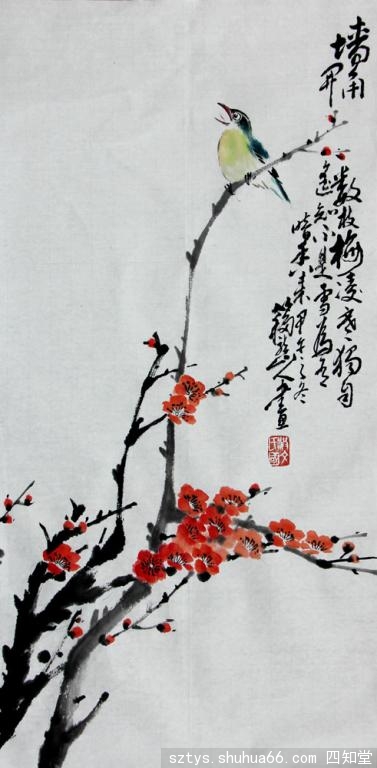 墙角数枝梅凌寒独自
开遥知不是雪为有
暗香来甲午之冬
人画
sztys.shuhua66.com 四知堂